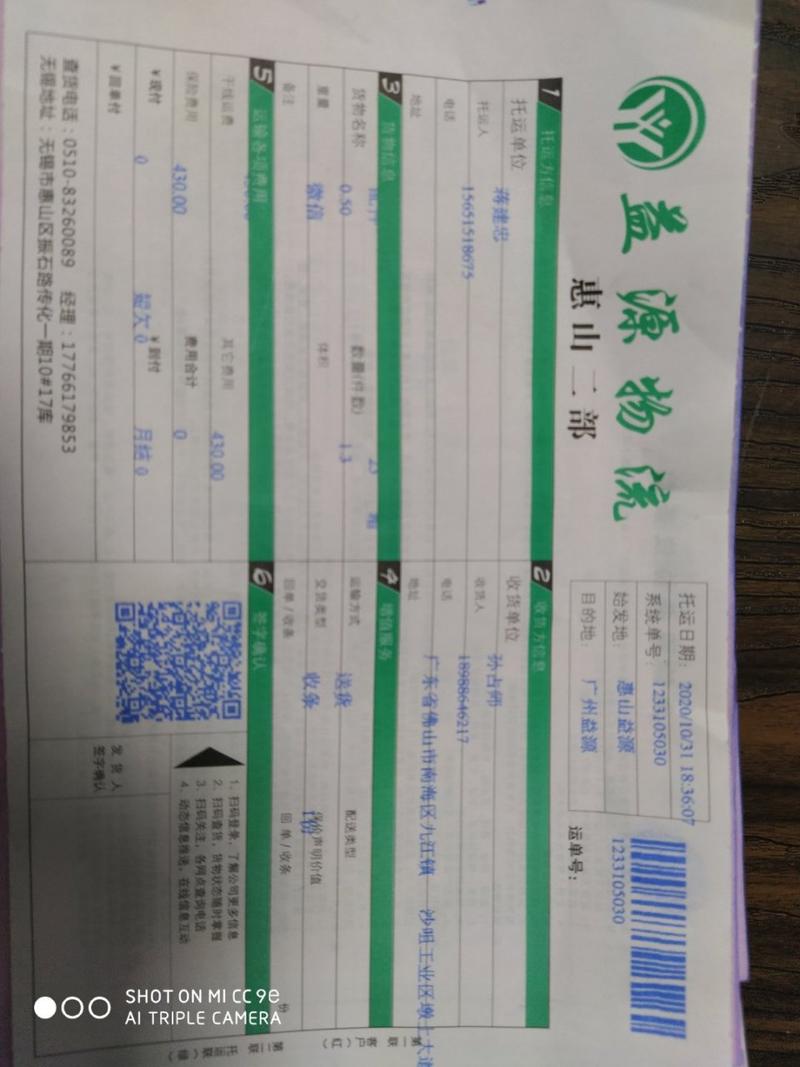 益源物流
惠山二部
托运日期: 2020/10/31 18:36:07
系统单号: 1233105030
始发地: 惠山益源
目的地: 广州益源
1233105030
运单号:
1 托运方信息
托运单位
托运人 蒋建忠
电话 15651518675
地址
2 收货方信息
收货单位
收货人 孙占师
电话 18988646217
地址 广东省佛山市南海区九江镇 沙咀工业区墩上大道
3 货物信息
货物名称 数量(件数) 23
重量 0.50 体积 1.3
备注 微信
4 增值服务
运输方式 配送类型
交货类型 送货 保价声明价值
回单/收条 收条 回单/收条 份
5 运输各项费用
干线运费 其它费用 430.00
保险费用 430.00 费用合计 0
¥现付 0 ¥到付
¥回单付 短欠 0 月结 0
6 签字确认
1、扫码登录,了解公司更多信息
2、扫码查货,货物状态随时掌握
3、扫码关注,各网点查询电话
4、动态信息推送,在线信息互动
发货人
签字确认
查货电话:0510-83260089 经理:17766179853
无锡地址:无锡市惠山区振石路传化一期10#17库
第一联 客户(红)
第二联 托运(绿)
SHOT ON MI CC 9e
AI TRIPLE CAMERA